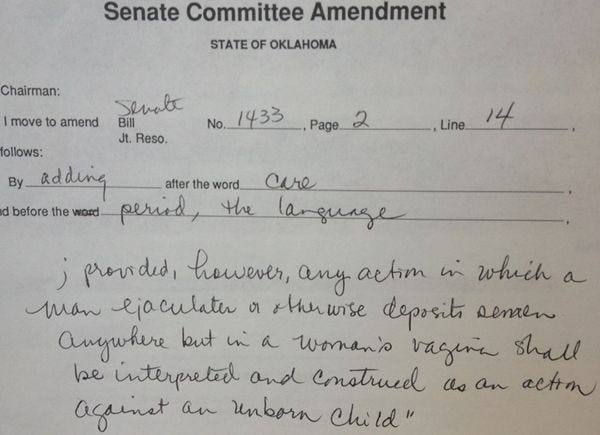 Senate Committee Amendment
STATE OF OKLAHOMA
Chairman:
Senate
I move to amend Bill No. 1433, Page 2, Line 14,
Jt. Reso.
follows:
By adding after the word care,
nd before the word period, the language,
; provided, however, any action in which a
man ejaculates or otherwise deposits semen
anywhere but in a woman's vagina shall
be interpreted and construed as an action
against an unborn child"